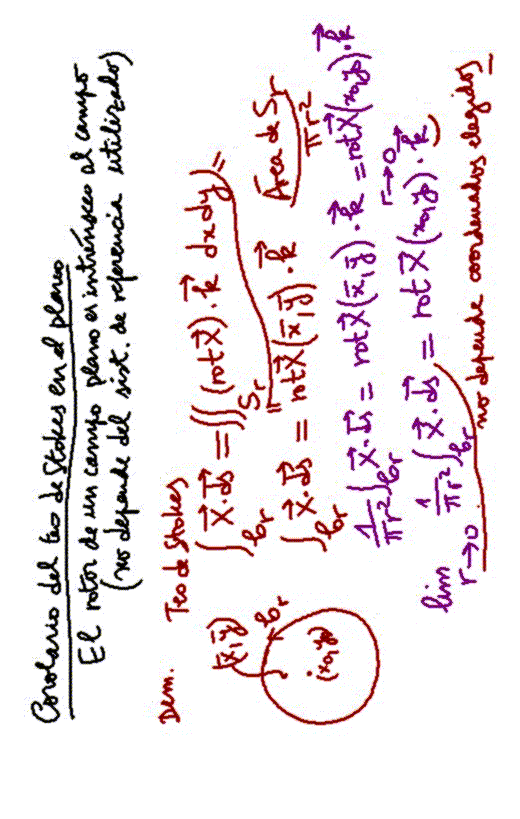 Corolario del teo de Stokes en el plano
El rotor de un campo plano es intrínseco al campo
(no depende del sist. de referencia utilizado)
Dem. Teo de Stokes
∫_{br} X⃗·ds⃗ = ∬_{Sr} (rot X⃗)·k⃗ dxdy =
∫_{br} X⃗·ds⃗ = rot X⃗(x̄,ȳ)·k⃗ Área de Sr
πr²
(x̄,ȳ) br
(x₀,y₀)
1/πr² ∫_{br} X⃗·ds⃗ = rot X⃗(x̄,ȳ)·k⃗ = rot X⃗(x₀,y₀)·k⃗
r→0
lim_{r→0} 1/πr² ∫_{br} X⃗·ds⃗ = rot X⃗(x₀,y₀)·k⃗)
no depende coordenadas elegidos